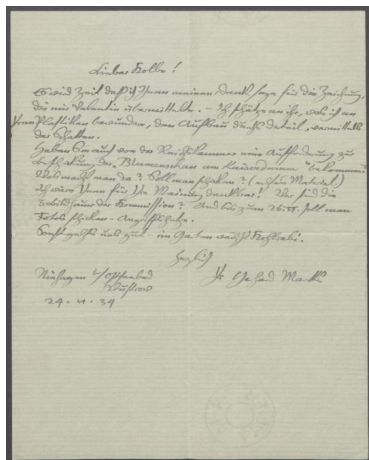 Lieber Kolbe!
Es wird Zeit daß ich Ihnen meinen Dank sage für die Zeichnung,
die mir Valentin übermittelte. – Ich schätze an ihr, was ich an
Ihren Plastiken bewundere, den Aufbau durchs Detail, vermittels
der Schatten.
Haben Sie auch von der Reichskammer eine Aufforderung zur
Beschickung der " am " bekommen?
Was macht man da? Soll man schicken? ( Material)
Ich wäre Ihnen für Ihre Meinung dankbar! Wer sind die
Bildhauer der Kommission? Und bis zum 26. soll man
Fotos schicken –
Sonst geht's uns gut – im Garten wächst Kohlrabi.
Herzlich
Ihr Gerhard Marcks
Niehagen b/Ostseebad
Wustrow
24. 39